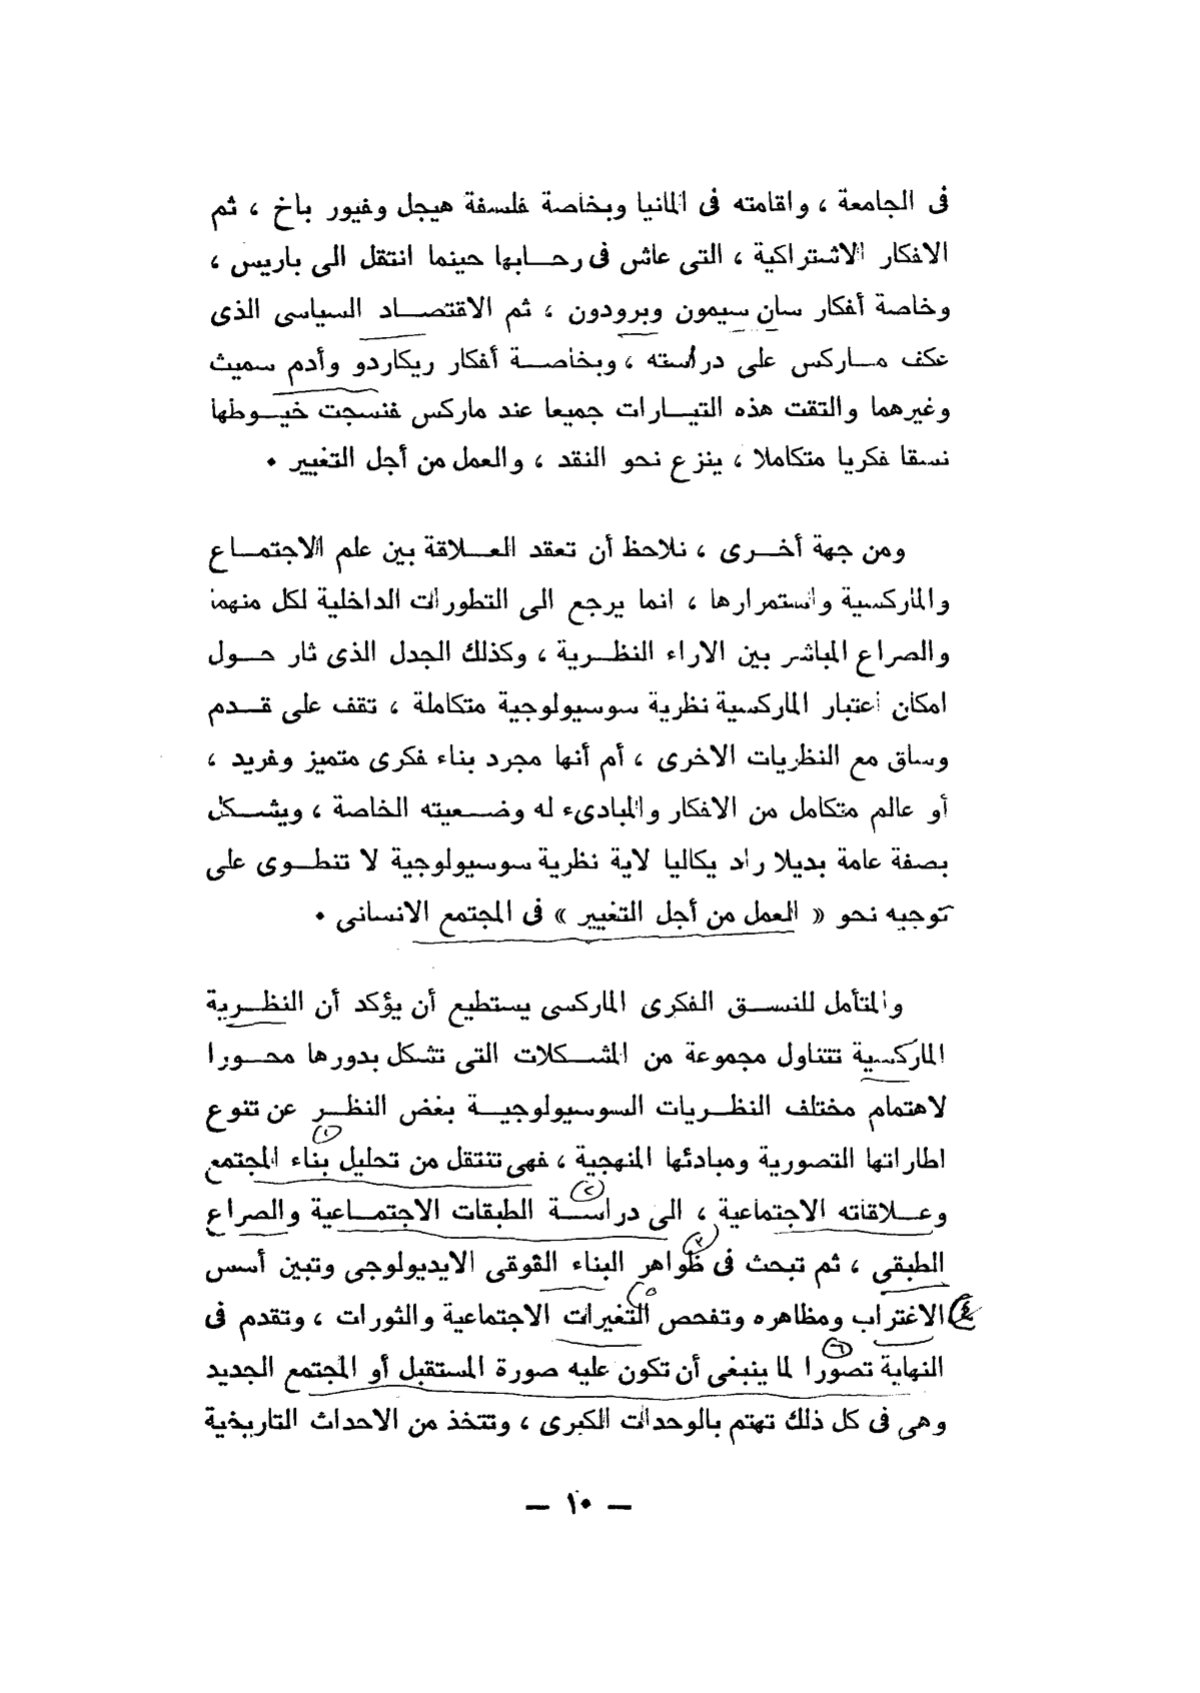 فى الجامعة ، واقامته فى المانيا وبخاصة فلسفة هيجل وفيور باخ ، ثم
الافكار الاشتراكية ، التى عاش فى رحـــابها حينما انتقل الى باريس ،
وخاصة أفكار سان سيمون وبرودون ، ثم الاقتصــاد السياسى الذى
عكف مــاركس على دراسته ، وبخاصــة أفكار ريكاردو وأدم سميث
وغيرهما والتقت هذه التيــارات جميعا عند ماركس فنسجت خيــوطها
نسقا فكريا متكاملا ، ينزع نحو النقد ، والعمل من أجل التغيير ٠
ومن جهة أخــرى ، نلاحظ أن تعقد العــلاقة بين علم الاجتمــاع
والماركسية واستمرارها ، انما يرجع الى التطورات الداخلية لكل منهما
والصراع المباشر بين الاراء النظــرية ، وكذلك الجدل الذى ثار حــول
امكان اعتبار الماركسية نظرية سوسيولوجية متكاملة ، تقف على قــدم
وساق مع النظريات الاخرى ، أم أنها مجرد بناء فكرى متميز وفريد ،
أو عالم متكامل من الافكار والمبادىء له وضــعيته الخاصة ، ويشــكل
بصفة عامة بديلا راد يكاليا لاية نظرية سوسيولوجية لا تنطــوى على
توجيه نحو « العمل من أجل التغيير » فى المجتمع الانسانى ٠
والمتأمل للنســق الفكرى الماركسى يستطيع أن يؤكد أن النظــرية
الماركسية تتناول مجموعة من المشــكلات التى تشكل بدورها محــورا
لاهتمام مختلف النظــريات السوسيولوجيــة بغض النظــر عن تنوع
(١)
اطاراتها التصورية ومبادئها المنهجية ، فهى تنتقل من تحليل بناء المجتمع
(٢)
وعــلاقاته الاجتماعية ، الى دراســة الطبقات الاجتمــاعية والصراع
(٣)
الطبقى ، ثم تبحث فى ظواهر البناء الفوقى الايديولوجى وتبين أسس
(٥)
(٤) الاغتراب ومظاهره وتفحص التغيرات الاجتماعية والثورات ، وتقدم فى
(٦)
النهاية تصورا لما ينبغى أن تكون عليه صورة المستقبل أو المجتمع الجديد
وهى فى كل ذلك تهتم بالوحدات الكبرى ، وتتخذ من الاحداث التاريخية
— ١٠ —